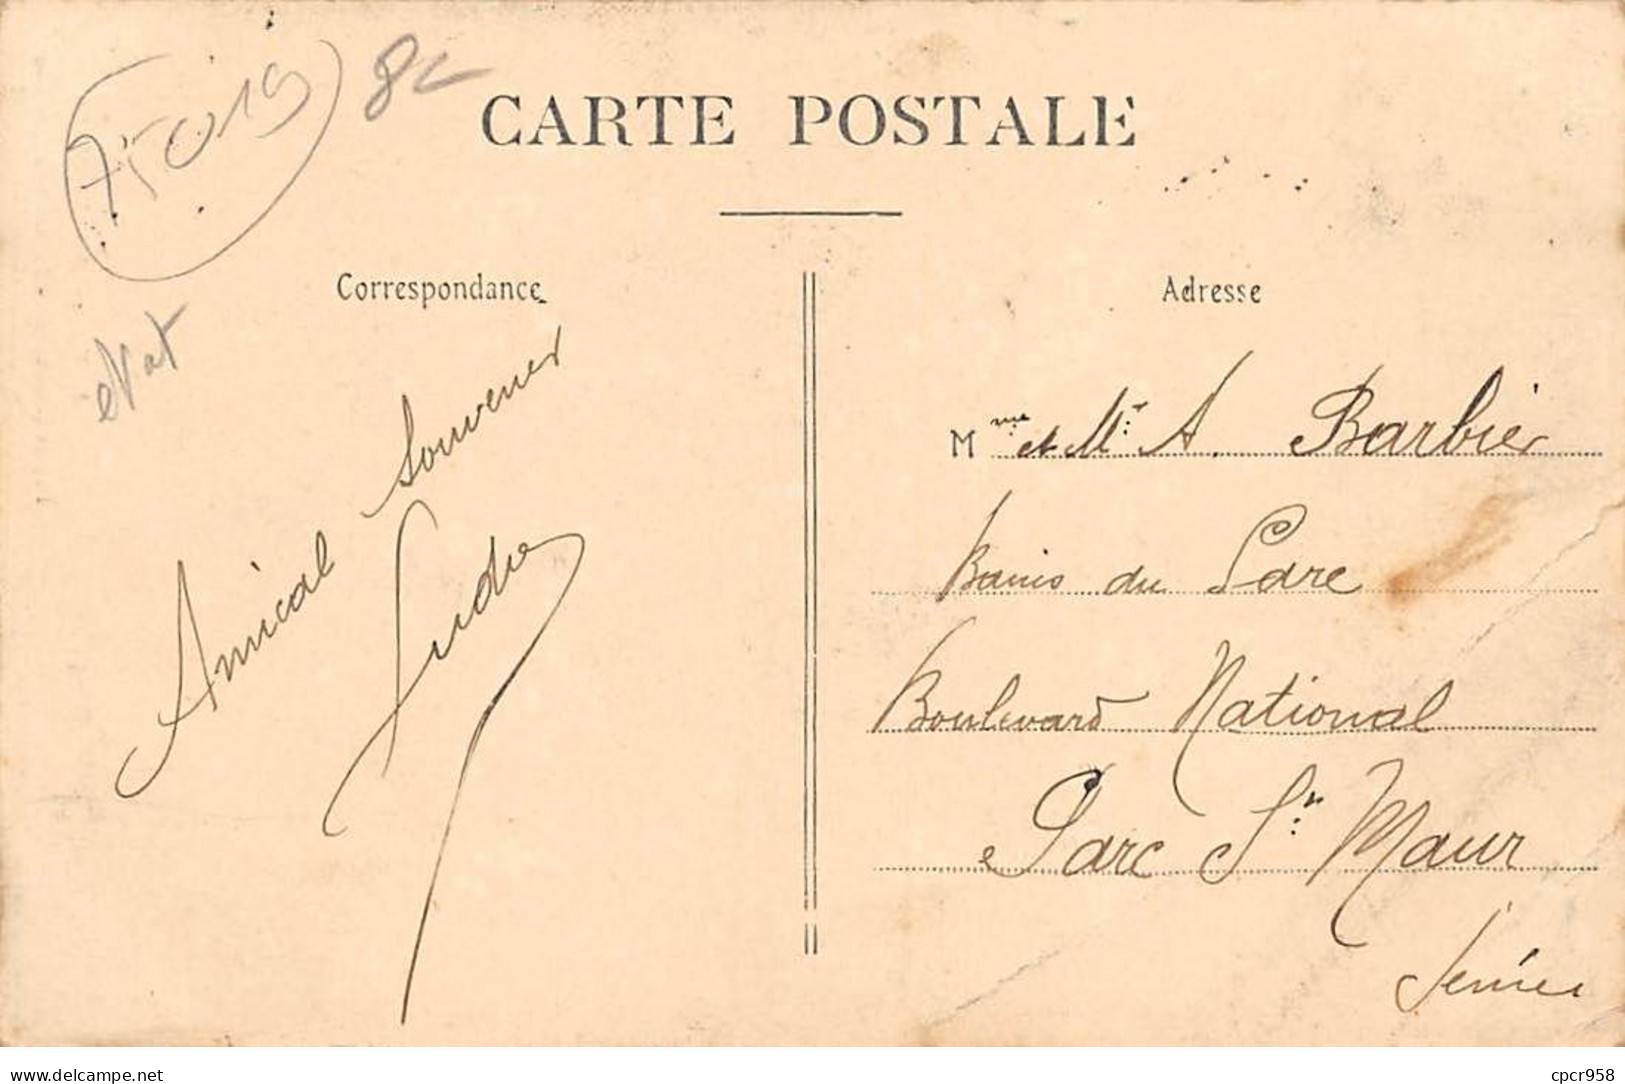 75019
8€
CARTE POSTALE
Correspondance
Adresse
etat
Amical Souvenir
Mme et Mr A. Barbier
Bains du Parc
Boulevard National
Parc St Maur
Seine
www.delcampe.net
cpcr958